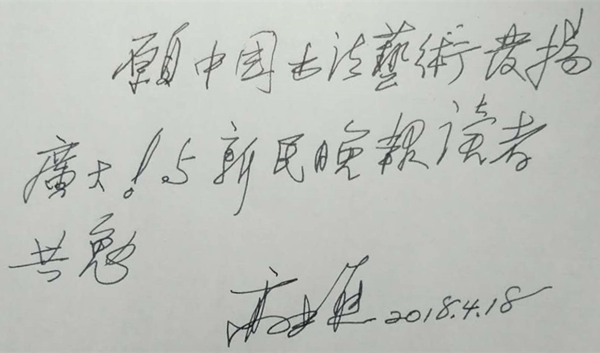 願中国书法藝術發揚
廣大！与新民晚報读者
共勉
高式熊 2018.4.18